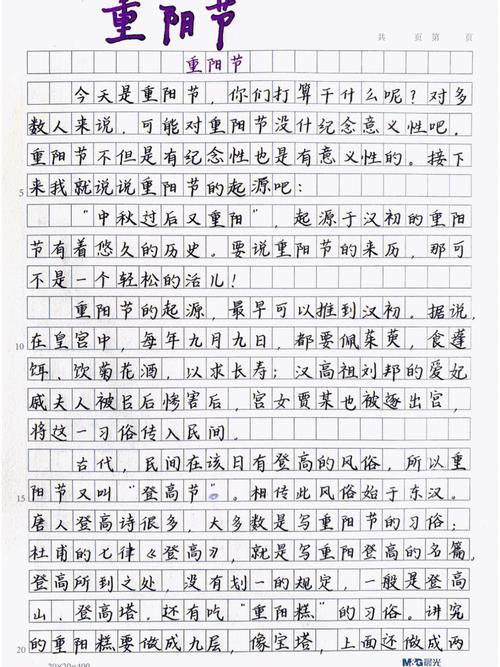 重阳节
共 页 第 页
重阳节
今天是重阳节，你们打算干什么呢？对多
数人来说，可能对重阳节没什纪念意义性吧，
重阳节不但是有纪念性也是有意义性的。接下
5 来我就说说重阳节的起源吧：
“中秋过后又重阳”，起源于汉初的重阳
节有着悠久的历史。要说重阳节的来历，那可
不是一个轻松的活儿！
重阳节的起源，最早可以推到汉初。据说，
10 在皇宫中，每年九月九日，都要佩茱萸，食蓬
饵、饮菊花酒，以求长寿；汉高祖刘邦的爱妃
戚夫人被吕后惨害后，宫女贾某也被逐出宫，
将这一习俗传入民间。
古代，民间在该日有登高的风俗，所以重
15 阳节又叫“登高节”。相传此风俗始于东汉。
唐人登高诗很多，大多数是写重阳节的习俗；
杜甫的七律《登高》，就是写重阳登高的名篇，
登高所到之处，没有划一的规定，一般是登高
山、登高塔。还有吃“重阳糕”的习俗。讲究
20 的重阳糕要做成九层，像宝塔，上面还做成两
M&G晨光
20×20=400